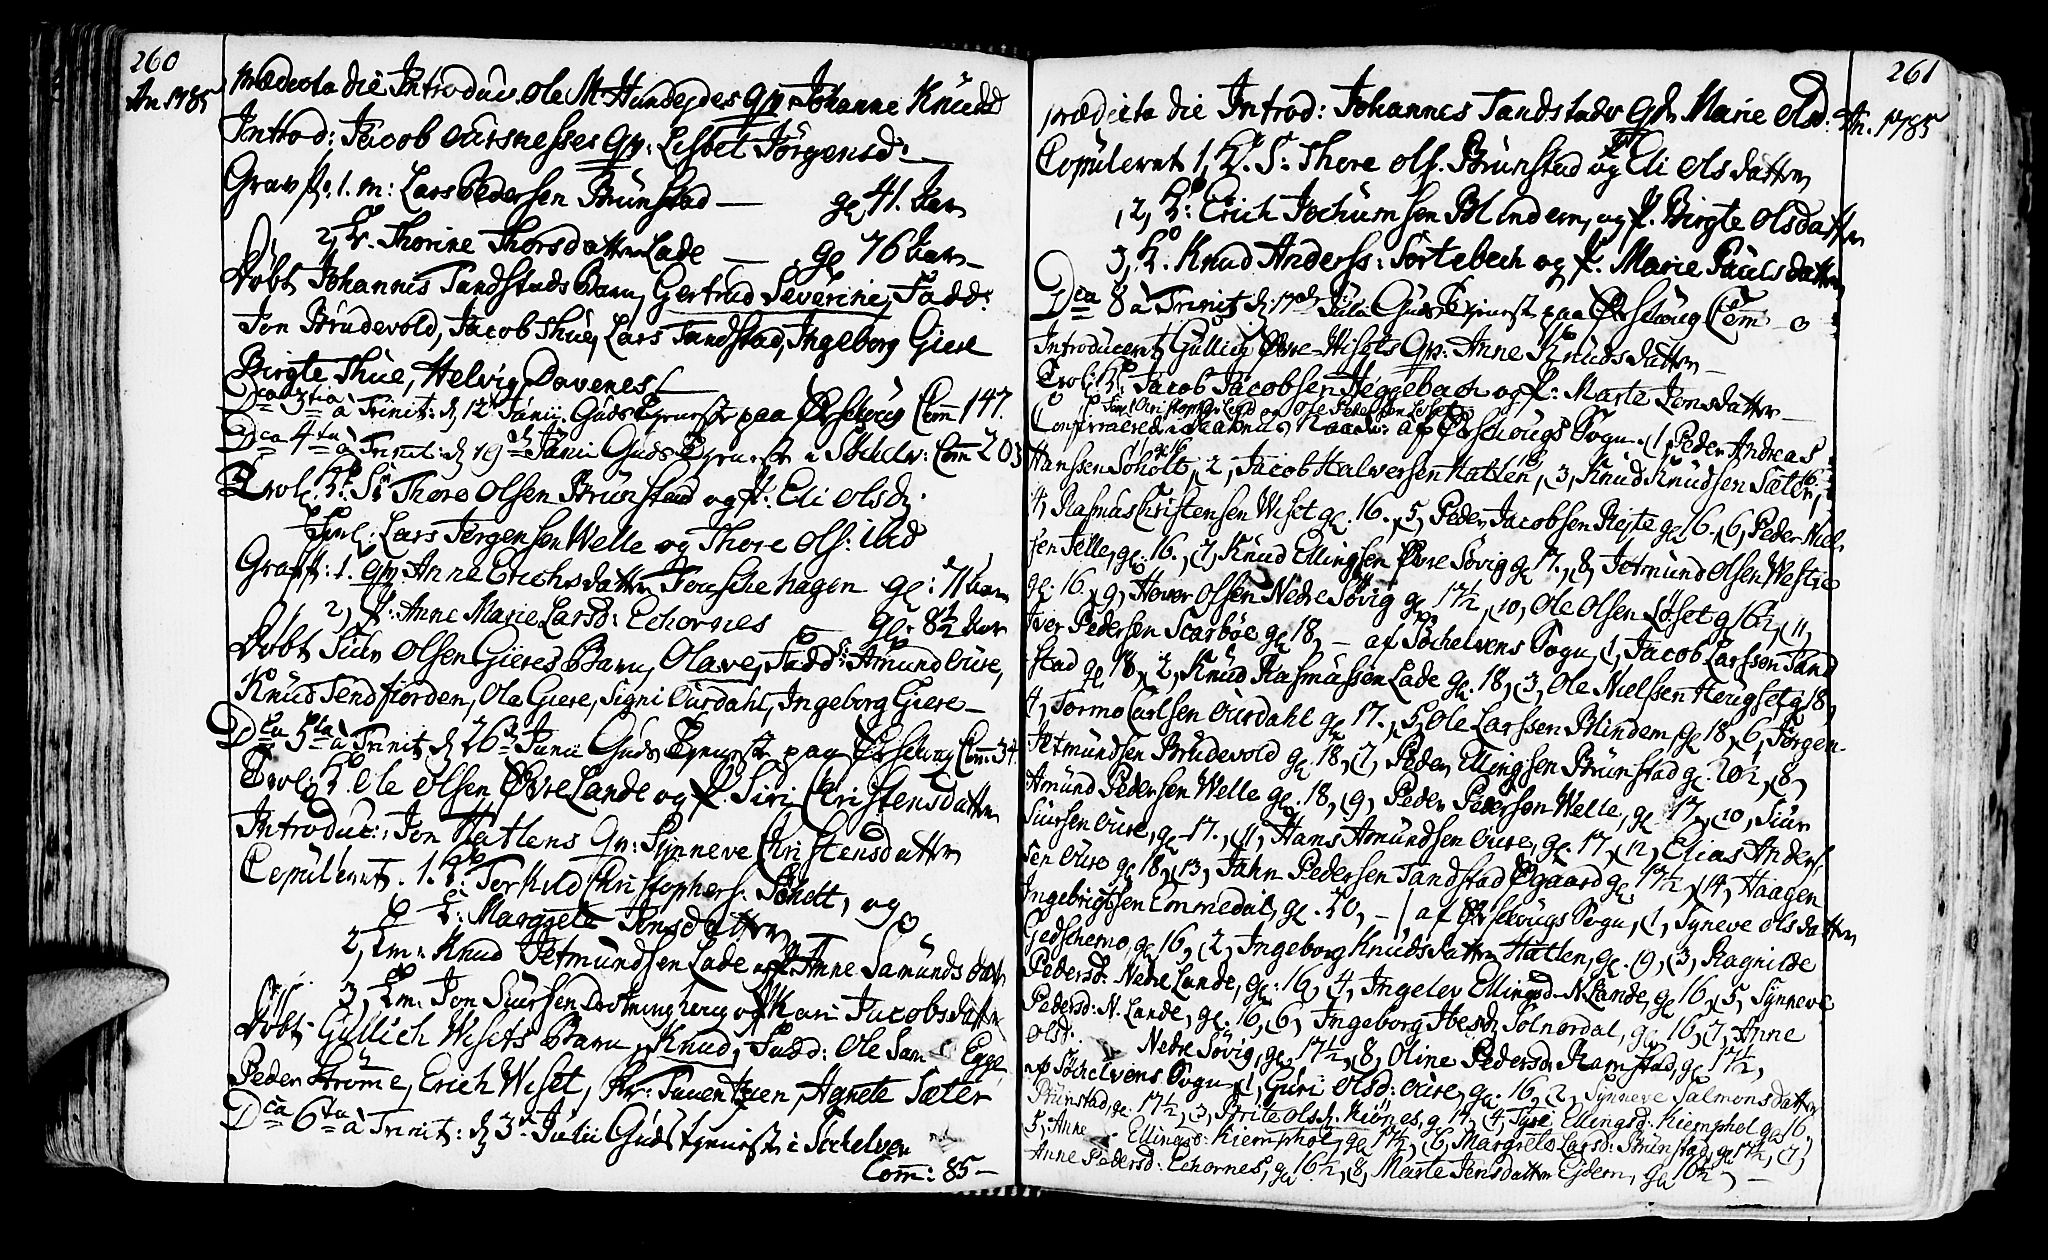 260
An. 1785
prædicta die Introduc. Ole M: Hundejdes Qv. Johanne Knudsd
Introd: Jacob Oursnesses Qv: Lisbet Jörgensd:
Grav f.: 1. m: Lars Pedersen Brunstad — gl 41. Aar
2, Thorine Thorsdatter Lade — gl 76 Aar —
Döbt Johannis Tandstads Barn, Gertrud Severine, Fadd:
Jon Brudevold, Jacob Thue, Lars Tandstad, Ingeborg Giere
Birgte Thue, Helvig Davenes
Dca 3tia à Trinit: d. 12 Junii Guds Tjenest paa Ørschoug Com 147.
Dca 4ta à Trinit: d 19de Junii Guds Tjenest i Söchelv: Com 203
Trol. K. Sr Thore Olsen Brunstad og P: Eli Olsd:
Lars Jörgensen Welle og Thore Ols: ibid
Graf f.: 1. Qv. Anne Erichsdatter Tousche hagen gl: 71 Aar
2, P: Anne Marie Larsd: Echornes gl: 8½ Aar
Döbt Siur Olsen Gieres Barn, Olave, Fadd: Amund Oure,
Knud Tendfiorden, Ola Giere, Signi Ourdahl, Ingeborg Giere —
Dca 5ta à Trinit d 26de Junii Guds Tjenest paa Ørschoug Com: 34
Trol: K. Ole Olsen Øvre Lande og P. Siri Christensdatter
Introduc: Jon Hatlens Qv: Synneve Christensdatter
Copulerent. 1. K: Torkild Christophers: Söholt, og
P: Margrete Jonsdatter
2, Em: Knud Jetmundsen Lade og P Anne Samundsdat
3, Em: Jon Siursen Drotninghoug og P Kari Jacobsdatter
Döbt Gullich Wisets Barn, Knud, Fadd: Ole Sam Egge,
Peder Strömme, Erich Wiset, Agnete Sæter
Dca 6ta à Trinit: d 3de Julii Guds tjenest i Söchelven
Com: 85 —
261
An. 1785
prædicta die Introd: Johannes Tandstads Qv. Marie Olsd:
Copulerent 1, K. S: Thore Ols. Brunstad og P Eli Olsdatter
2, K: Erich Jochumsen Blindem, og P. Birgte Olsdatter
3, K. Knud Anderss: Sortebech og P. Marie Paulsdatter
Dca 8 à Trinit: d. 17de Julii Guds Tjenest paa Ørschoug Com — 0
Introducerent Gullich Øvre Wisets Qv: Anne Knudsdatter —
Trol: K: Jacob Jacobsen Heggebach og P: Marte Jonsdatter —
Confirmered af Ørschougs Sogn. (1, Peder Andreas
Hanssen Söholt, 2, Jacob Halversen Hatlen, (3, Knud Knudsen Sæter,
4, Rasmus Christensen Wiset gl. 16. (5, Peder Jacobsen Rejte gl 16 (6, Peder Niel-
sen Jelle, gl. 16. (7, Knud Ellingsen Øvre Sövig gl 17. (8, Jetmund Olsen Westre
gl. 16. (9, Hover Olsen Nedre Sövig gl 17½, (10, Ole Olsen Löset g 16½, (11,
Iver Pedersen Scarböe gl 18, — af Söchelvens Sogn, (1, Jacob Larssøn Tand
stad gl 18, 2, Knud Rasmussen Lade gl. 18, (3, Ole Nielsen Heugset g 18,
4, Tormo Carlsen Ourdahl gl 17., (5, Ole Larssen Blindem, gl 18, (6, Jörgen
Jetmundsen Brudevold gl 18, (7, Peder Ellingsen Brunstad gl. 20½, (8,
Amund Pedersen Welle gl. 18, (9, Peder Pedersen Welle, gl 17, (10, Siur
Siursen Oure, gl 17., (11, Hans Amundsen Oure, gl. 17, (12, Elias Anders-
sen Oure gl 18, (13, Jahn Pedersen Tandstad Øgaard gl 17½, (14, Haagen
Ingebrigtsen Emmedal, gl. 20, — af Ørschougs Sogn, (1, Syneve Olsdatter
Gedschemo, gl 16, (2, Ingeborg Knudsdatter Hatlen, gl. 19, (3, Ragnilde
Pedersd: Nedre Lande, gl: 16, (4, Ingelev Ellingsd N. Lande, gl 16. (5, Synneve
Pedersd: N. Lande, gl. 16, (6, Ingeborg Ibesd Solnördal, gl 16, (7, Anne
Olsd: Nedre Sövig, gl 17½, (8, Oline Pedersd: Ramstad, gl 17½,
af Söchelvens Sogn (1, Guri Olsd: Oure, gl. 16, (2, Synneve Salmonsdatter
Brunstad, gl. 17½, (3, Brite Olsd: Kiörnes, g 17, (4, Tyri Ellingsd: Kiemphol gl 16,
5, Anne Ellingsd: Kiemphol, gl 17½, (6, Margrete Larsd: Brunstad, gl 17½, (7,
Anne Pedersd: Echornes, gl 16½, (8, Marte Jensdatter Ejdem, gl 16½, —